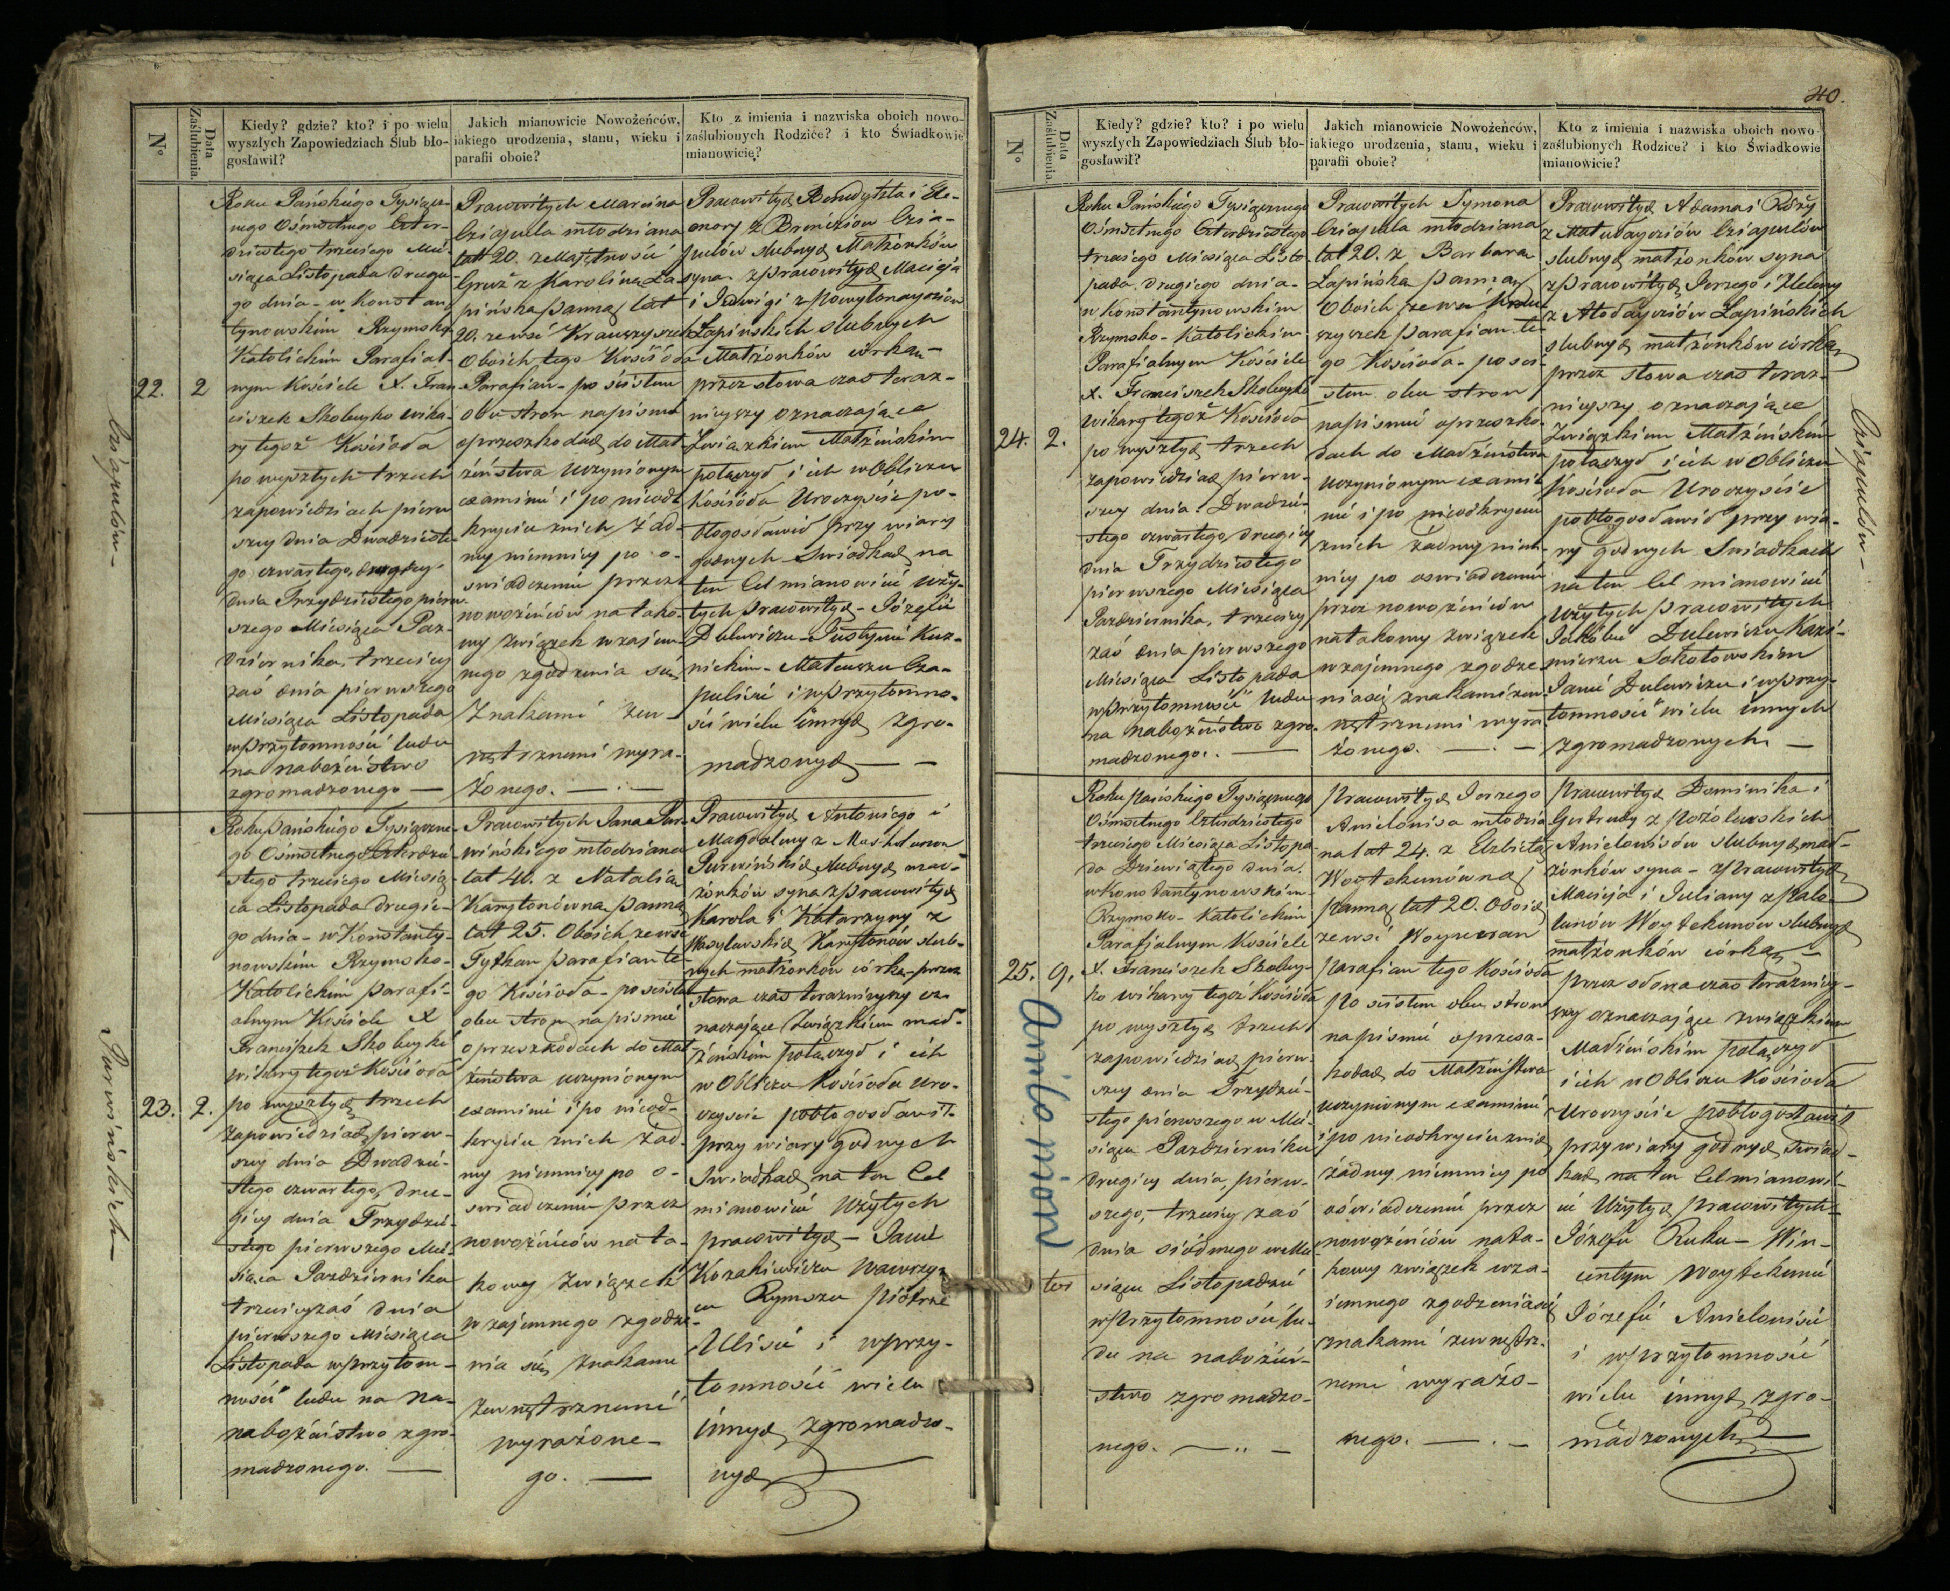 40.
Nº
Data Zaślubienia.
Kiedy? gdzie? kto? i po wielu
wyszłych Zapowiedziach Ślub bło-
gosławił?
Jakich mianowicie Nowożeńców,
jakiego urodzenia, stanu, wieku i
parafii oboie?
Kto z imienia i nazwiska oboich nowo-
zaślubionych Rodzice? i kto Świadkowie
mianowicie?
22.
2
Roku Pańskiego Tysiącz-
nego Ośmsetnego Czter-
dziestego trzeciego Mie-
siąca Listopada drugie-
go dnia - w Konstan-
tynowskim Rzymsko
Katolickim Parafial-
nym Kościele X. Fran-
ciszek Skobeyko wika-
ry tegoż Kościoła
po wyszłych trzech
zapowiedziach pierw
szey dnia Dwudzieste-
go czwartego, drugiey
dnia Trzydziestego pierw-
szego Miesiąca Paz-
dziernika, trzeciey
zaś dnia pierwszego
Miesiąca Listopada
w przytomności ludu
na nabożeństwo
zgromadzonego —
Pracowitych Marcina
Cziapula młodziana
lat 20. z Majętności
Gruź z Karoliną Ła-
pińską panną lat
20. ze wsi
Oboich tego Kościoła
Parafian - po ścisłem
obu stron na piśmie
o przeszkodach do Mał-
żeństwa uczynionym
examinie i po nieod-
kryciu z nich żad-
ney niemniey po o-
świadczeniu przez
nowożeńców na tako-
wy związek wzajem-
nego zgodzenia się
Znakami zew-
nętrznemi wyra-
żonego. —
Pracowitych Benedykta i Ele-
onory z Czia-
pulów ślubnych Małżonków
syna z pracowitych Macieja
i Jadwigi z
Łapińskich ślubnych
Małżonków córką -
przez słowa czas teraz-
nieyszy oznaczające
Związkiem Małżeńskim
połączył i ich w Obliczu
Kościoła Uroczyście po-
błogosławił przy wiary
godnych Świadkach na
ten Cel mianowicie uży-
tych pracowitych - Józefie
Dulewiczu - Justynie Kuz-
nickim - Mateuszu Cza-
pulisie i w przytomno-
ści wielu innych zgro-
madzonych —
Cziapulów -
23.
2.
Roku Pańskiego Tysiączne-
go Ośmsetnego Czterdzie
stego trzeciego Miesią-
ca Listopada drugie-
go dnia - w Konstanty-
nowskim Rzymsko-
Katolickim parafi-
alnym Kościele X
Franciszek Skobeyko
wikary tegoż Kościoła
po wyszłych trzech
Zapowiedziach pierw-
szey dnia Dwudzie-
stego czwartego, dru-
giey dnia Trzydzie-
stego pierwszego Mie-
siąca Pazdziernika
trzeciey zaś dnia
pierwszego Miesiąca
Listopada w przytom-
ności ludu na na-
nabożeństwo zgro-
madzonego. —
Pracowitych Jana Pur-
wińskiego młodziana
lat 40. z Natalią
Karytonówną panną
lat 25. Oboich ze wsi
parafian te-
go Kościoła - po ścisłem
obu stron na piśmie
o przeszkodach do Mał
żeństwa uczynionym
examinie i po nieod-
kryciu z nich żad-
ney niemniey po o-
świadczeniu przez
nowożeńców na ta-
kowy Związek
wzajemnego zgodze-
nia się znakami
zewnętrznemi
wyrażone-
go. —
Pracowitych Antoniego i
Magdaleny z
Purwińskich ślubnych mał-
żonków syna z pracowitych
Karola i Katarzyny z
Karytonów ślub-
nych małżonków córką - przez
słowa czas teraznieyszy oz-
naczające Związkiem mał-
żeńskim połączył i ich
w Obliczu Kościoła uro-
czyście pobłogosławił
przy wiary godnych
Świadkach na ten Cel
mianowicie Użytych
pracowitych - Janie
Kozakiewiczu Wawrzyn
cu Rymszu Piotrze
Ulisie i w przy-
tomności wielu
innych zgromadzo-
nych
Purwińskich -
Nº
Data Zaślubienia.
Kiedy? gdzie? kto? i po wielu
wyszłych Zapowiedziach Ślub bło-
gosławił?
Jakich mianowicie Nowożeńców,
jakiego urodzenia, stanu, wieku i
parafii oboie?
Kto z imienia i nazwiska oboich nowo-
zaślubionych Rodzice? i kto Świadkowie
mianowicie?
24.
2.
Roku Pańskiego Tysiącznego
Ośmsetnego Czterdziestego
trzeciego Miesiąca Listo
pada drugiego dnia -
w Konstantynowskim
Rzymsko - Katolickim
Parafialnym Kościele
X. Franciszek Skobeyko
Wikary tegoż Kościoła
po wyszłych trzech
zapowiedziach pierw-
szey dnia Dwudzie-
stego czwartego, drugiey
dnia Trzydziestego
pierwszego Miesiąca
Pazdziernika, trzeciey
zaś dnia pierwszego
Miesiąca Listopada
w przytomności ludu
na nabożeństwo zgro-
madzonego. —
Pracowitych Symona
Cziapula młodziana
lat 20. z Barbarą
Łapińską panną
Oboich ze wsi
parafian te-
go Kościoła - po ści-
słem obu stron
na piśmie o przeszko-
dach do Małżeństwa
uczynionym exami-
nie i po nieodkryciu
z nich żadney niem-
niey po oświadczeniu
przez nowożeńców
na takowy związek
wzajemnego zgodze-
nia się znakami zew-
nętrznemi wyra
żonego. —
Pracowitych Adama i
z Cziapulów
ślubnych małżonków syna
z pracowitych Jerzego i Heleny
z Łapińskich
ślubnych małżonków córką
przez słowa czas teraz-
nieyszy oznaczające
Związkiem Małżeńskim
połączył i ich w Obliczu
Kościoła Uroczyście
pobłogosławił przy wia-
ry godnych Świadkach
na ten Cel mianowicie
użytych pracowitych
Jakóbie Dulewiczu Kazi-
mierzu Sokołowskim
Janie Dulewiczu i w przy-
tomności wielu innych
zgromadzonych —
Cziapulów -
25.
9.
Roku Pańskiego Tysiącznego
Ośmsetnego Czterdziestego
trzeciego Miesiąca Listopa-
da Dziewiątego dnia
w Konstantynowskim
Rzymsko - Katolickim
Parafialnym Kościele
X. Franciszek Skobey-
ko wikary tegoż Kościoła
po wyszłych trzech
zapowiedziach pierw-
szey dnia Trzydzie-
stego pierwszego w Mie-
siącu Pazdzierniku
drugiey dnia pierw-
szego, trzeciey zaś
dnia siódmego w Mie-
siącu Listopadzie
w przytomności lu-
du na nabożeń-
stwo zgromadzo-
nego. —
Pracowitych Jerzego
Anielonisa młodzia
na lat 24. z Elżbietą
Woytekunówną
Panną lat 20. Oboich
ze wsi
parafian tego Kościoła
po ścisłem obu stron
na piśmie o przesz-
kodach do Małżeństwa
uczynionym examinie
i po nieodkryciu z nich
żadney niemniey po
oświadczeniu przez
nowożeńców na ta-
kowy związek wza-
jemnego zgodzenia się
znakami zewnętrz-
nemi wyrażo-
nego. —
Pracowitych Dominika i
Gertrudy z
Anielonisów ślubnych mał-
żonków syna - z Pracowitych
Macieja i Julianny z
Woytekunów ślubnych
małżonków córką —
przez słowa czas teraźniey-
szy oznaczające związkiem
Małżeńskim połączył
i ich w Obliczu Kościoła
Uroczyście pobłogosławił
przy wiary godnych Świad-
kach na ten Cel mianowi-
cie Użytych Pracowitych
Józefie Ruku - Win-
centym Woytekunie
Józefie Anielonisie
i w przytomności
wielu innych zgro-
madzonych —